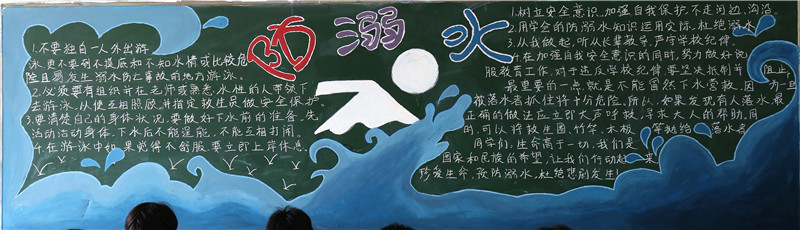 防溺水
1.不要独自一人外出游
泳,更不要到不摸底和不知水情或比较危
险且易发生溺水伤亡事故的地方游泳。
2.必须要有组织并在老师或熟悉水性的人带领下
去游泳。以便互相照顾,并指定救生员做安全保护。
3.要清楚自己的身体状况,要做好下水前的准备,先
活动活动身体,下水后不能逞能,不能互相打闹。
4.在游泳中如果觉得不舒服,要立即上岸休息。
1.树立安全意识,加强自我保护,不走河边、沟沿。
2.用学会的防溺水知识运用实际,杜绝溺水
3.从我做起,听从长辈教导,严守学校纪律。
4.在加强自我安全意识的同时,努力做好说
服教育工作,对于违反学校纪律要坚决抵制并阻止。
最重要的一点就是不能冒然下水营救,因为一旦
被落水者抓住将十分危险。所以,如果发现有人落水,最
正确的做法应立即大声呼救,寻求大人的帮助。同
时,可以将救生圈、竹竿、木板等抛给落水者
同学们,生命高于一切,我们是
国家和民族的希望,让我们行动起来
珍爱生命,预防溺水,杜绝悲剧发生!